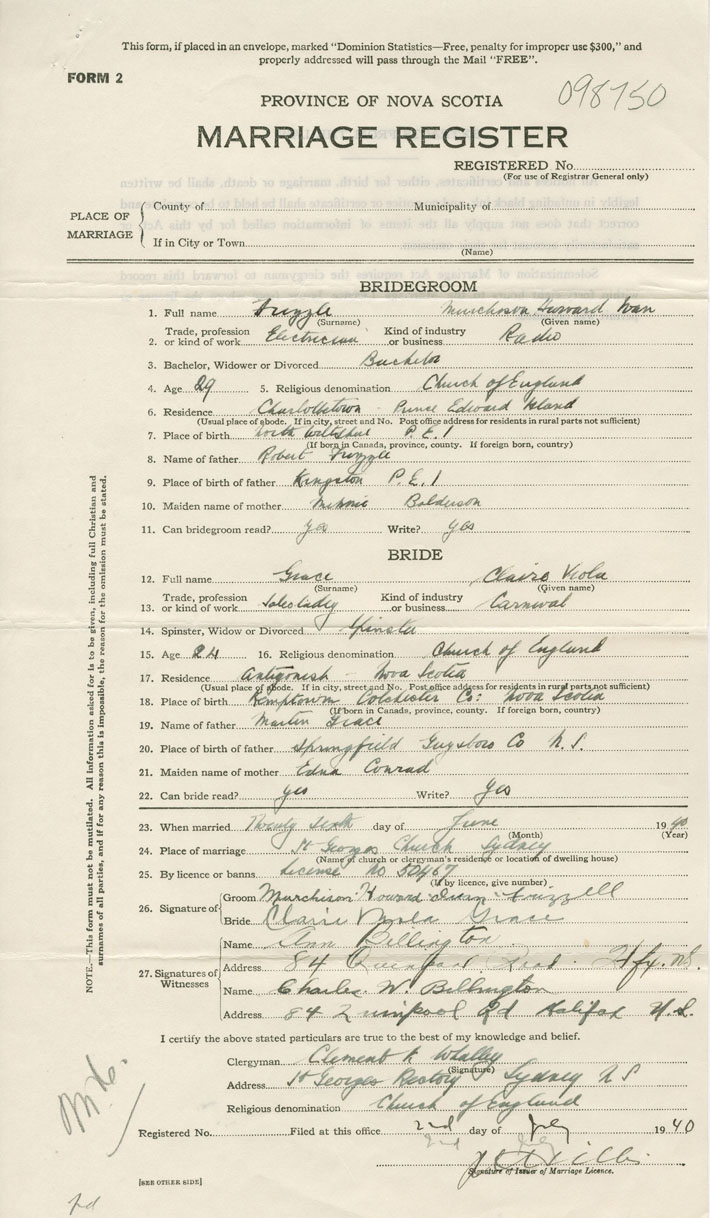 This form, if placed in an envelope, marked "Dominion Statistics—Free, penalty for improper use $300," and
properly addressed will pass through the Mail "FREE".
FORM 2
098750
PROVINCE OF NOVA SCOTIA
MARRIAGE REGISTER
REGISTERED No.
(For use of Registrar General only)
PLACE OF MARRIAGE
County of Municipality of
If in City or Town
(Name)
BRIDEGROOM
1. Full name Frizzle Murchison Howard Ivan
(Surname) (Given name)
Trade, profession Kind of industry
2. or kind of work Electrician or business Radio
3. Bachelor, Widower or Divorced Bachelor
4. Age 29 5. Religious denomination Church of England
6. Residence Charlottetown Prince Edward Island
(Usual place of abode. If in city, street and No. Post office address for residents in rural parts not sufficient)
7. Place of birth North Wiltshire P.E.I
(If born in Canada, province, county. If foreign born, country)
8. Name of father Robert Frizzle
9. Place of birth of father Kingston P.E.I
10. Maiden name of mother Minnie Balderson
11. Can bridegroom read? Yes Write? Yes
BRIDE
12. Full name Grace Claire Viola
(Surname) (Given name)
Trade, profession Kind of industry
13. or kind of work Saleslady or business Carnival
14. Spinster, Widow or Divorced Spinster
15. Age 24 16. Religious denomination Church of England
17. Residence Antigonish Nova Scotia
(Usual place of abode. If in city, street and No. Post office address for residents in rural parts not sufficient)
18. Place of birth Kemptown Colchester Co: Nova Scotia
(If born in Canada, province, county. If foreign born, country)
19. Name of father Martin Grace
20. Place of birth of father Springfield Guysboro Co N.S.
21. Maiden name of mother Edna Conrad
22. Can bride read? Yes Write? Yes
23. When married Twenty Sixth day of June 1940
(Month) (Year)
24. Place of marriage St Georges Church Sydney
(Name of church or clergyman's residence or location of dwelling house)
25. By licence or banns License No 50467
(If by licence, give number)
26. Signature of
Groom Murchison Howard Ivan Frizzell
Bride Claire Viola Grace
27. Signatures of Witnesses
Name Ann Billington
Address 84 Road. Hfx. N.S.
Name Charles W. Billington
Address 84 Rd Halifax N.S.
I certify the above stated particulars are true to the best of my knowledge and belief.
Clergyman Clement
(Signature)
Address St Georges Rectory Sydney N S
Religious denomination Church of England
Registered No. Filed at this office 2nd day of July 1940
2nd July
Signature of Issuer of Marriage Licence.
[SEE OTHER SIDE]
NOTE.—This form must not be mutilated. All information asked for is to be given, including full Christian and
surnames of all parties, and if for any reason this is impossible, the reason for the omission must be stated.